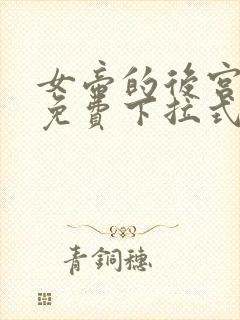 女帝的後宮
免費下拉式
青銅穗